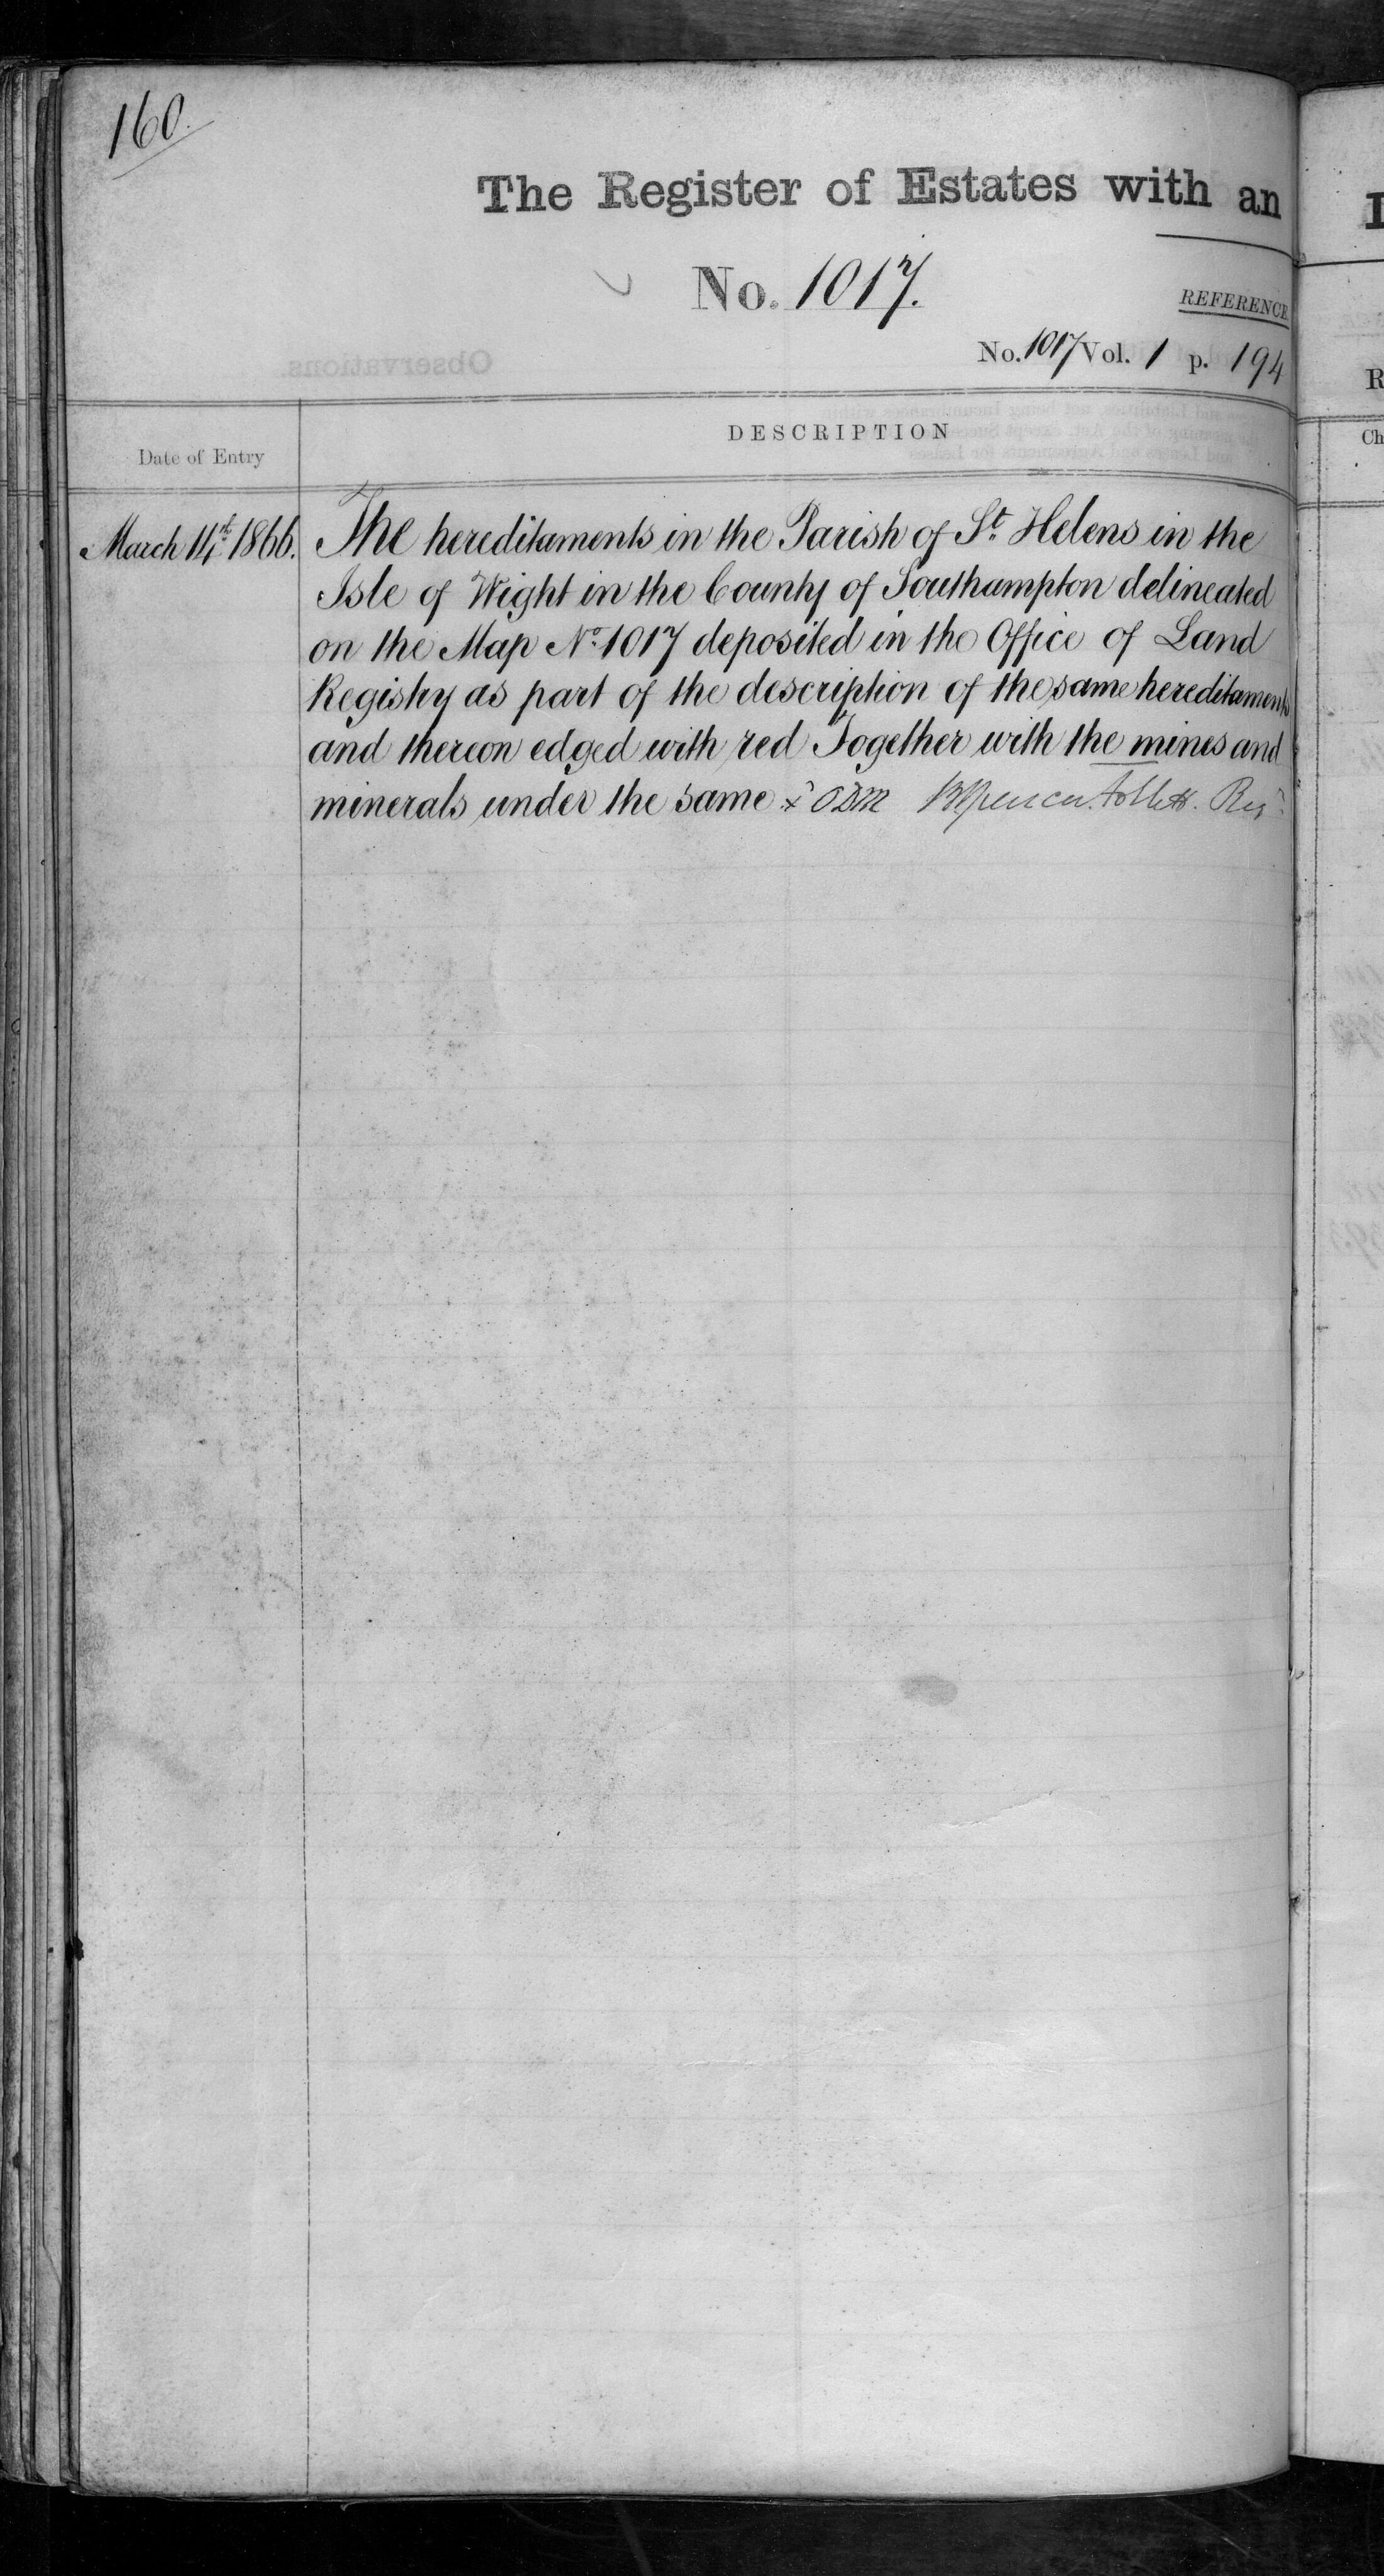 160.
The Register of Estates with an
No. 1017.
REFERENCE.
No. 1017 Vol. 1 p. 194
Date of Entry
DESCRIPTION
March 14th 1866.
The hereditaments in the Parish of St. Helens in the
Isle of Wight in the County of Southampton delineated
on the Map No. 1017 deposited in the Office of Land
Registry as part of the description of the same hereditaments
and thereon edged with red Together with the mines and
minerals under the same Brent Spencer Follett. Regr.
Observations.
Ch